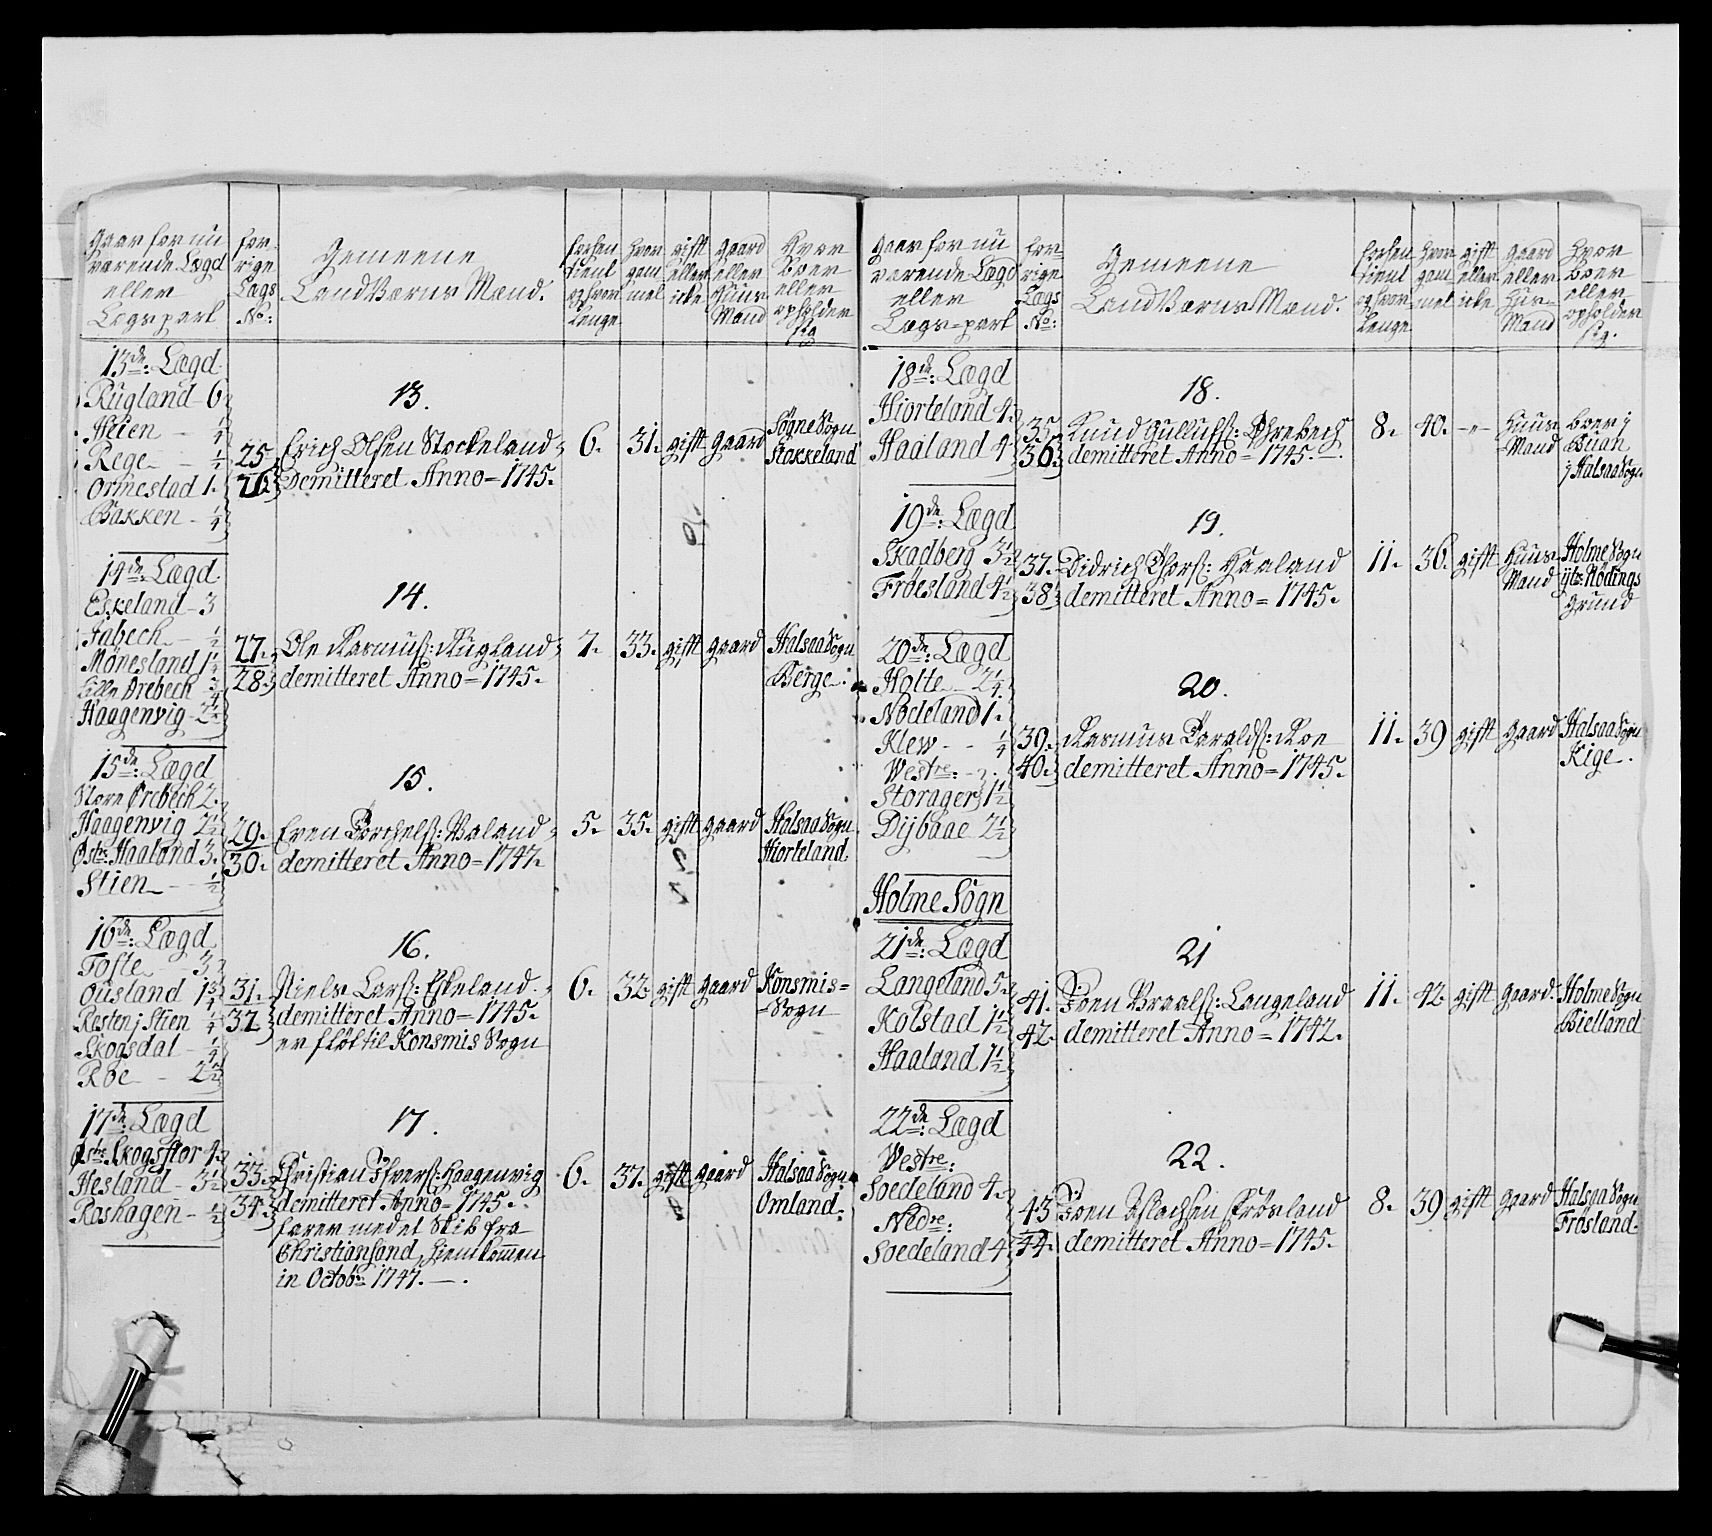 Gaar for nu
værende Lægd
eller
Lægs part
For-
rige
Lægs
No:
Gemeene
LandVærns Mand.
forhen
tient
og hvor
lenge
hvor
gam
mel
gift
eller
icke
gaard
eller
Huus
Mand
Hvor
boer
eller
opholder
sig
13de: Lægd
Rügland 6
Heien - ¼
Rege - ½
Ormestad 1.
Backen - ¼
13.
25
26
Erich Olsen Stockeland
Demitteret Anno 1745.
6. 31. gift gaard
Søgne Sogn
Stokkeland
14de: Lægd
Eskeland 3
Fabech - ½
Mönesland 1¼
Lille Örebech ¾
Haagenvig 2½
14.
27.
28.
Ole Rasmuss: Rügland
demitteret Anno 1745.
7. 33. gift gaard
Halsaa Sogn
Berge.
15de: Lægd
Store Örebech 2.
Haagenvig 2½
Østre Haaland 3.
Stien - ½
15.
29.
30.
Even Torchels: Valand
demitteret Anno 1747.
5. 35. gift gaard
Halsaa Sogn
Hiorteland.
16de: Lægd
Tofte - 3
Ousland 1¾
Resten j Stien ¼
Skogsdal - ¼
Röe - 2½
16.
31.
32
Niels Lars: Eskeland.
demitteret Anno 1745.
er fløt til Konsmis Sogn
6. 32. gift gaard
Konsmis=
=Sogn
17de: Lægd
Østre Skogsflor 4.
Hesland - 3½
Roshagen - ½
17.
33.
34.
Christian Ifvers: Haagenvig
demitteret Anno 1745.
farer med et Skib fra
Christiansand, hiemkommen
in Octobr 1747.
6. 37. gift gaard
Halsaa Sogn
Omland.
Gaar for nu
værende Lægd
eller
Lægs=part
For=
rige
Lægs
No:
Gemeene
LandVærns Mand.
forhen
tient
og hvor
lenge
hvor
gam
mel
gift
eller
icke
gaard
eller
Huus-
Mand
Hvor
boer
eller
opholder
sig.
18de: Lægd
Hiorteland 4.
Haaland 4
18.
35
36.
Knud Gullufs: Øhrebech
demitteret Anno 1745.
8. 40. -"-
Huus
=Mand
boer j
Buan
j Halsaa Sogn
19de: Lægd
Skadberg 3½
Frøesland 4½
19.
37.
38.
Didrich Thors: Haaland
demitteret Anno 1745.
11. 36. gift
Huus-
Mand
Holme Sogn
Nödings
Grund
20de: Lægd
Holte - 2¼
Nodeland 1.
Klew - ¼
Westre: - 2.
Storager 1½
Dijbaae 2½
20.
39.
40.
Rasmus Taralds: Roe
demitteret Anno 1745.
11. 39 gift gaard
Halsaa Sogn
Kige.
Holme Sogn
21de: Lægd
Langeland 5.
Kolstad 1½
Haaland 1½
21
41.
42.
Joen Braals: Langeland
demitteret Anno 1742.
11. 42 gift gaard.
Holme Sogn
Bielland
22de: Lægd
Westre:
Soedeland 4.
Nedre:
Soedeland 4
22.
43
44.
Joen Aslachsen Frösland
demitteret Anno 1745.
8. 39 gift gaard
Halsaa Sogn
Frösland.